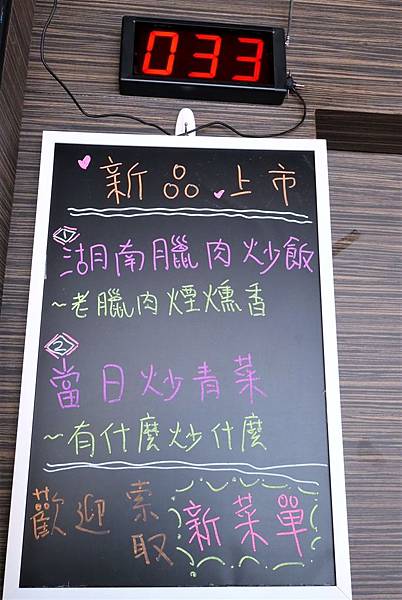 033
新品上市
1 湖南臘肉炒飯
~老臘肉煙燻香
2 當日炒青菜
~有什麼炒什麼
歡迎索取 新菜單